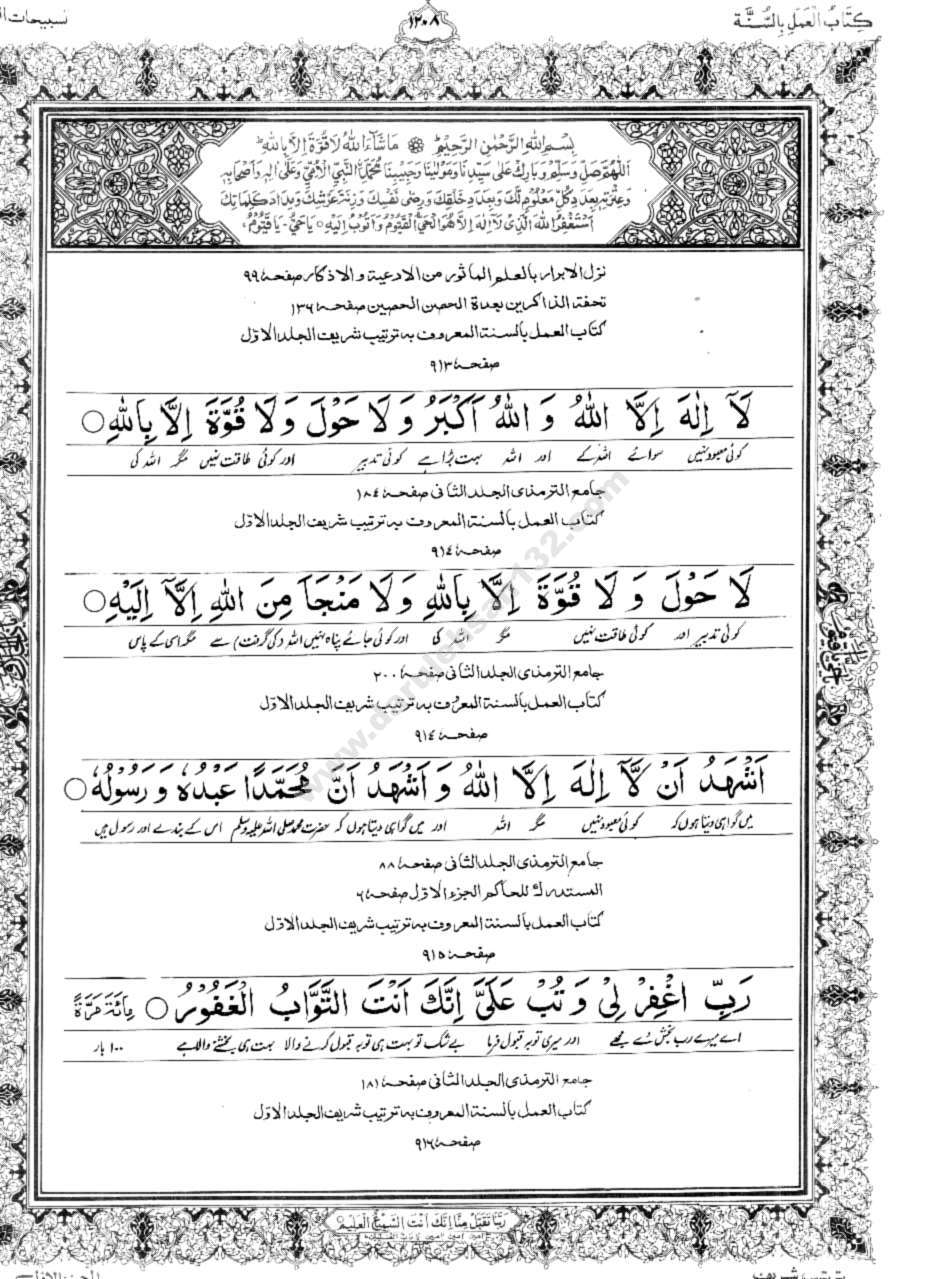 كِتَابُ الْعَمَلِ بِالسُّنَّة
١٢٠٨
بِسْمِ اللهِ الرَّحْمٰنِ الرَّحِيْمِ مَا شَآءَ اللهُ لَا قُوَّةَ اِلَّا بِاللهِ
اَللّٰهُمَّ صَلِّ وَسَلِّمْ وَبَارِكْ عَلٰى سَيِّدِنَا وَمَوْلَيْنَا وَحَبِيْبِنَا مُحَمَّدِ النَّبِيِّ الْاُمِّيِّ وَعَلٰٓى اٰلِهٖ وَاَصْحَابِهٖ
وَعِتْرَتِهٖ بِعَدَدِ كُلِّ مَعْلُوْمٍ لَّكَ وَبِعَدَدِ خَلْقِكَ وَرِضٰى نَفْسِكَ وَزِنَةَ عَرْشِكَ وَمِدَادَ كَلِمَاتِكَ
اَسْتَغْفِرُ اللهَ الَّذِيْ لَآ اِلٰهَ اِلَّا هُوَ الْحَيُّ الْقَيُّوْمُ وَاَتُوْبُ اِلَيْهِ ۝ يَا حَيُّ - يَا قَيُّوْمُ
نزل الابرار بالعلم الماثور من الادعية والاذكار صفحه ٩٩
تحفة الذاكرين بعدة الحصن الحصين صفحه ١٣٦
كتاب العمل بالسنة المعروف به ترتيب شريف الجلد الاوّل
صفحه ٩١٣
لَآ اِلٰهَ اِلَّا اللهُ وَ اللهُ اَكْبَرُ وَ لَا حَوْلَ وَ لَا قُوَّةَ اِلَّا بِاللهِ ۝
کوئی معبود نہیں سوائے اللہ کے اور اللہ بہت بڑا ہے کوئی تدبیر اور کوئی طاقت نہیں مگر اللہ کی
جامع الترمذى الجلد الثانى صفحه ١٨٤
كتاب العمل بالسنة المعروف به ترتيب شريف الجلد الاوّل
صفحه ٩١٤
لَا حَوْلَ وَ لَا قُوَّةَ اِلَّا بِاللهِ وَ لَا مَنْجَاَ مِنَ اللهِ اِلَّآ اِلَيْهِ ۝
کوئی تدبیر اور کوئی طاقت نہیں مگر اللہ کی اور کوئی جائے پناہ نہیں اللہ (کی گرفت) سے مگر اسی کے پاس
جامع الترمذى الجلد الثانى صفحه ٢٠٠
كتاب العمل بالسنة المعروف به ترتيب شريف الجلد الاوّل
صفحه ٩١٤
اَشْهَدُ اَنْ لَّآ اِلٰهَ اِلَّا اللهُ وَ اَشْهَدُ اَنَّ مُحَمَّدًا عَبْدُهٗ وَ رَسُوْلُهٗ ۝
میں گواہی دیتا ہوں کہ کوئی معبود نہیں مگر اللہ اور میں گواہی دیتا ہوں کہ حضرت محمد صلی اللہ علیہ وسلم اس کے بندے اور رسول ہیں
جامع الترمذى الجلد الثانى صفحه ٨٨
المستدرك للحاكم الجزء الاوّل صفحه ٦
كتاب العمل بالسنة المعروف به ترتيب شريف الجلد الاوّل
صفحه ٩١٥
رَبِّ اغْفِرْ لِيْ وَ تُبْ عَلَيَّ اِنَّكَ اَنْتَ التَّوَّابُ الْغَفُوْرُ ۝ مِائَةَ مَرَّةً
اے میرے رب بخش دے مجھے اور میری توبہ قبول فرما بے شک تو بہت ہی توبہ قبول کرنے والا بہت ہی بخشنے والا ہے ۱۰۰ بار
جامع الترمذى الجلد الثانى صفحه ١٨١
كتاب العمل بالسنة المعروف به ترتيب شريف الجلد الاوّل
صفحه ٩١٦
رَبَّنَا تَقَبَّلْ مِنَّا اِنَّكَ اَنْتَ السَّمِيْعُ الْعَلِيْمُ